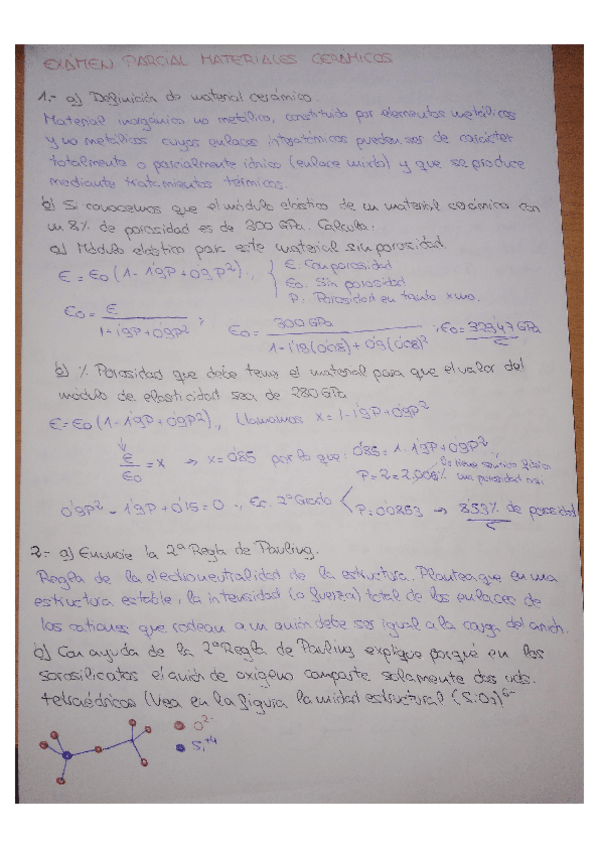 EXAMEN PARCIAL MATERIALES CERAMICOS
1.- a) Definición de material cerámico.
Material inorgánico no metálico, constituido por elementos metálicos
y no metálicos cuyos enlaces interatómicos pueden ser de carácter
totalmente o parcialmente iónico (enlace mixto) y que se produce
mediante tratamientos térmicos.
b) Si conocemos que el módulo elástico de un material cerámico con
un 8% de porosidad es de 300 GPa. Calcula:
a) Módulo elástico para este material sin porosidad.
E = E0 (1 - 1'9P + 0'9P²).,
E: Con porosidad
E0: Sin porosidad
P: Porosidad en tanto x uno.
E0 = E / 1-1'9P+0'9P² ; E0 = 300 GPa / 1-1'19(0'08) + 0'9(0'08)² ; E0 = 329'47 GPa
b) % Porosidad que debe tener el material para que el valor del
módulo de elasticidad sea de 280 GPa
E = E0 (1 - 1'9P + 0'9P²)., Llamamos x = 1-1'9P+0'9P²
E / E0 = x → x = 0'85 por lo que: 0'85 = 1 - 1'9P + 0'9P².,
No tiene sentido físico una porosidad
0'9P² - 1'9P + 0'15 = 0 ., Ec. 2º Grado
P = 0'0853 → 8'53% de porosidad
2.- a) Enuncie la 2ª Regla de Pauling.
Regla de la electroneutralidad de la estructura. Plantea que en una
estructura estable, la intensidad (o fuerza) total de los enlaces de
los cationes que rodean a un anión debe ser igual a la carga del anión.
b) Con ayuda de la 2ª Regla de Pauling explique porqué en los
sorosilicatos el anión de oxígeno comparte solamente dos uds.
tetraédricas (Vea en la figura la unidad estructural (Si2O7)6-
O2-
Si+4